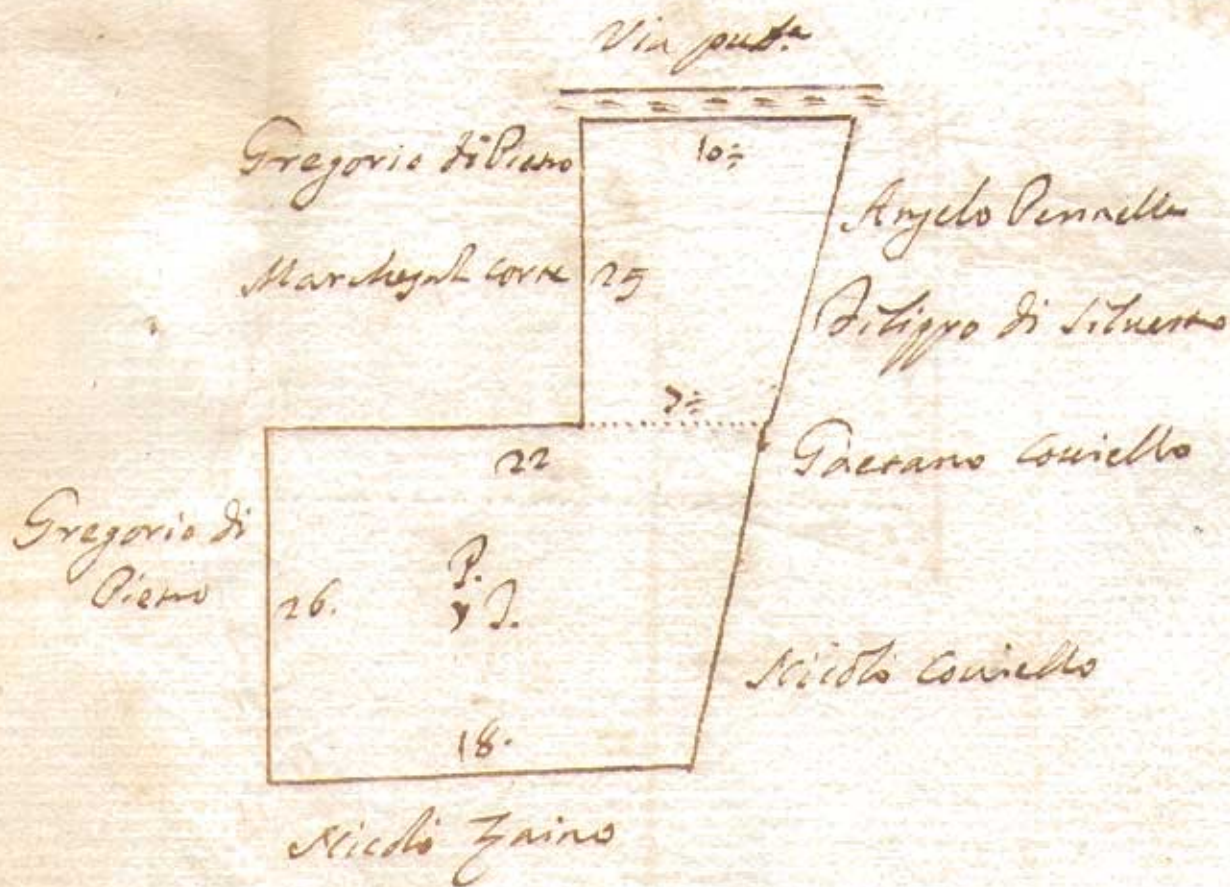 Via pub.ca
Gregorio di Pietro
10½
Angelo Pennella
25
Filippo di Silvestro
7½
22
Gaetano Coviello
Gregorio di
Pietro
26.
P.
Nicolò Coviello
18.
Nicolò Zaino